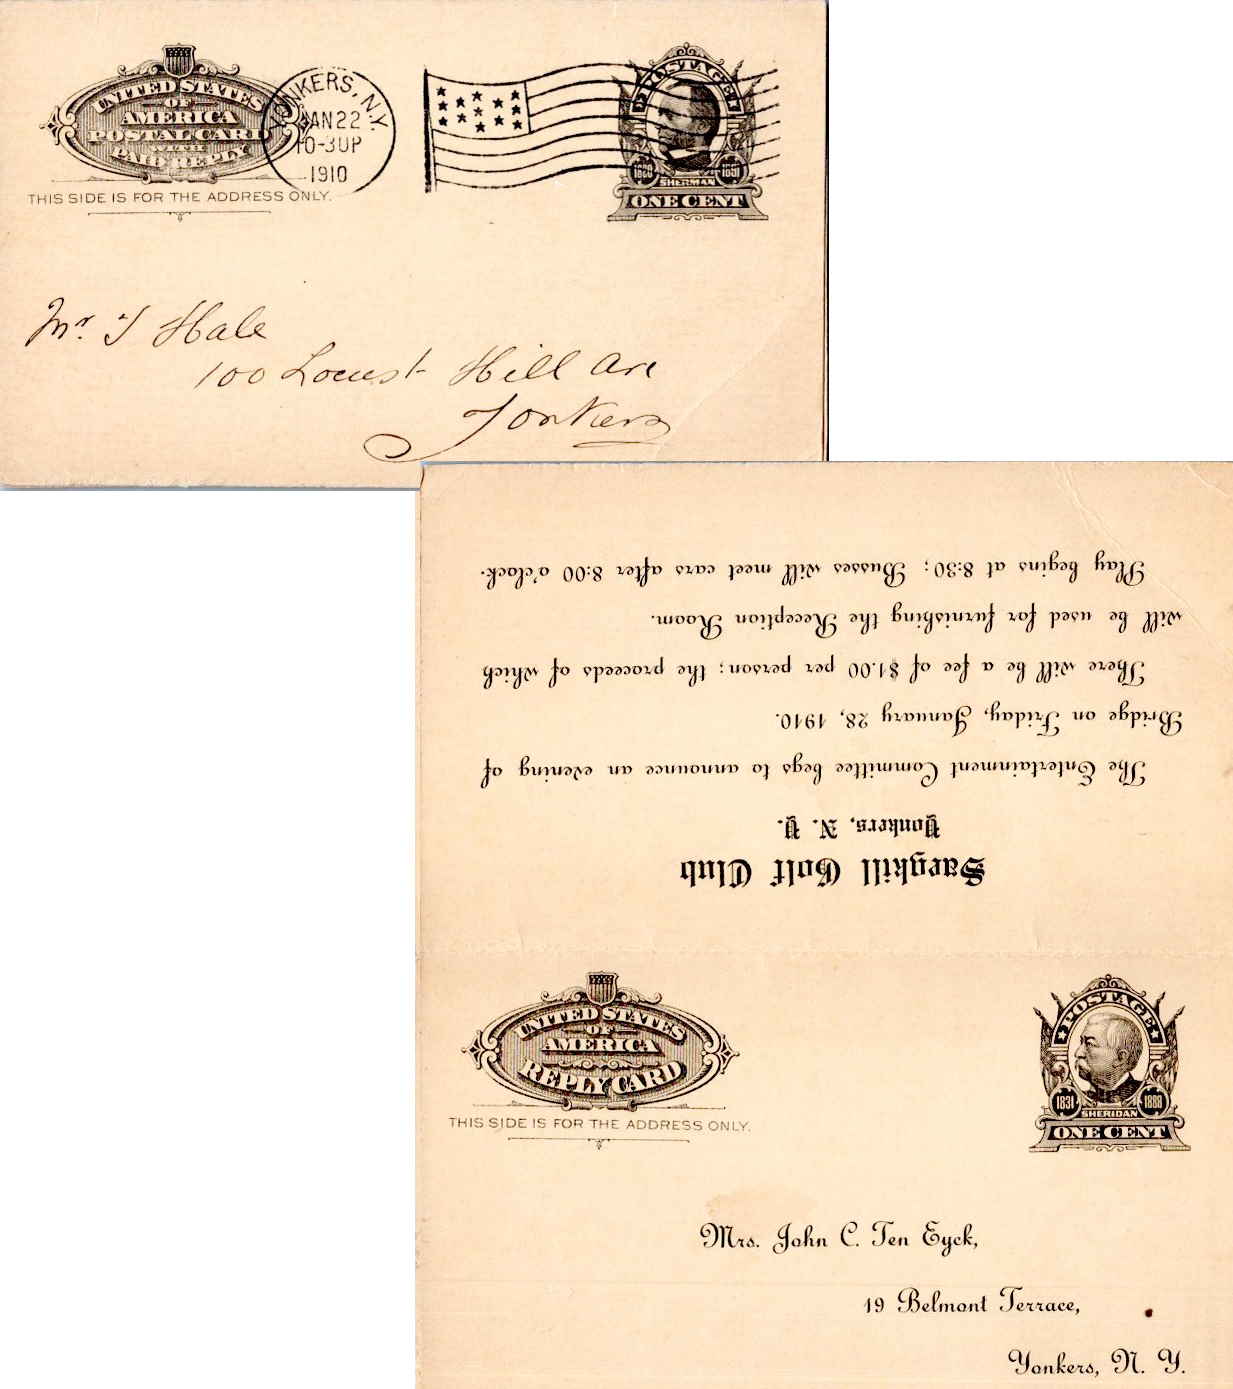 UNITED STATES
OF
AMERICA
POSTAL CARD
WITH
PAID REPLY
THIS SIDE IS FOR THE ADDRESS ONLY.
YONKERS, N.Y.
JAN 22
10-30P
1910
POSTAGE
1820 1891
SHERMAN
ONE CENT
Mr. T Hale
100 Locust Hill Ave
Yonkers
Saegkill Golf Club
Yonkers, N. Y.
The Entertainment Committee begs to announce an evening of
Bridge on Friday, January 28, 1910.
There will be a fee of $1.00 per person; the proceeds of which
will be used for furnishing the Reception Room.
Play begins at 8:30; Busses will meet cars after 8:00 o'clock.
UNITED STATES
OF
AMERICA
REPLY CARD
THIS SIDE IS FOR THE ADDRESS ONLY.
POSTAGE
1831 1888
SHERIDAN
ONE CENT
Mrs. John C. Ten Eyck,
19 Belmont Terrace,
Yonkers, N. Y.